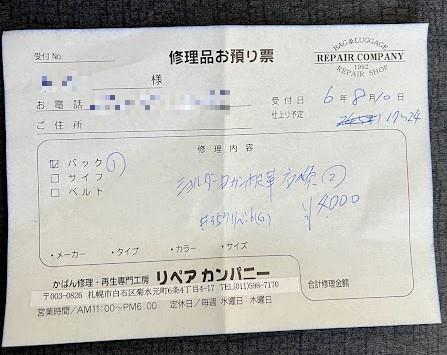 受付No
修理品お預り票
BAG & LUGGAGE
REPAIR COMPANY
1992
REPAIR SHOP
様
お電話
ご住所
受付日 6年8月10日
仕上り予定
修理内容
バック ①
サイフ
ベルト
ショルダー Dカン根革 交換 ②
¥4000
・メーカー ・タイプ ・カラー ・サイズ
かばん修理・再生専門工房 リペア カンパニー
〒003-0826 札幌市白石区菊水元町6条4丁目4-17 TEL(011)598-7170
営業時間/AM11:00~PM6:00 定休日/毎週 水曜日 木曜日
合計修理金額